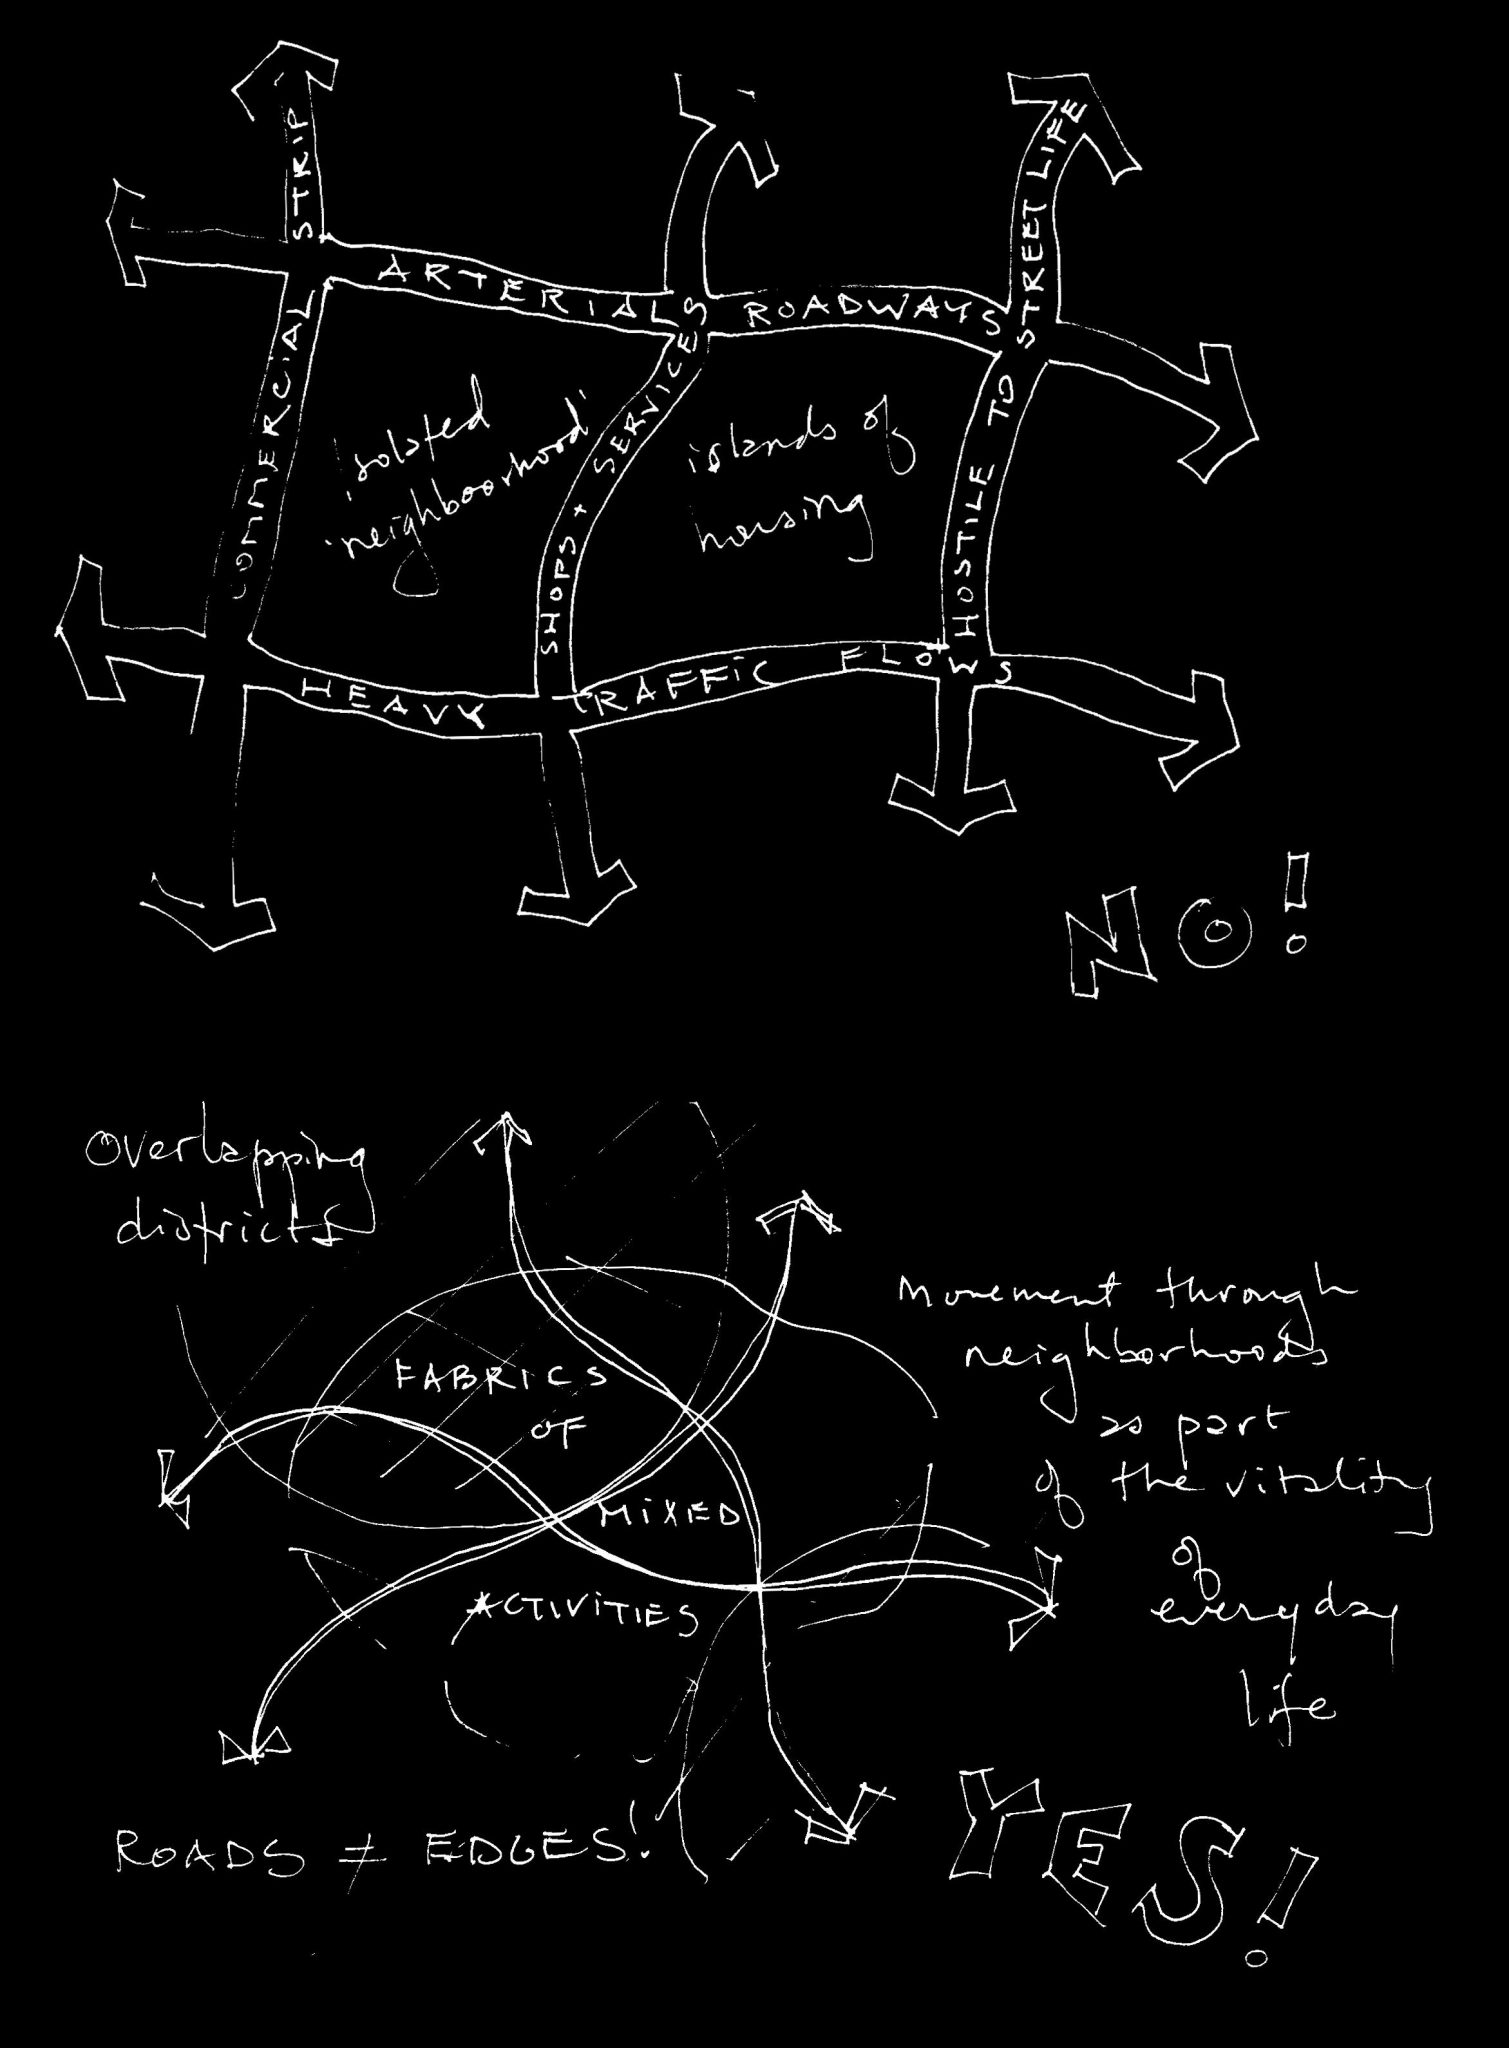 COMMERCIAL STRIP
ARTERIAL ROADWAYS
SHOPS + SERVICES
HOSTILE TO STREET LIFE
isolated
'neighboorhood'
islands of
housing
HEAVY TRAFFIC FLOWS
NO!
Overlapping
districts
FABRICS
OF
MIXED
ACTIVITIES
Movement through
neighborhoods
as part
of the vitality
of
everyday
life
ROADS ≠ EDGES!
YES!